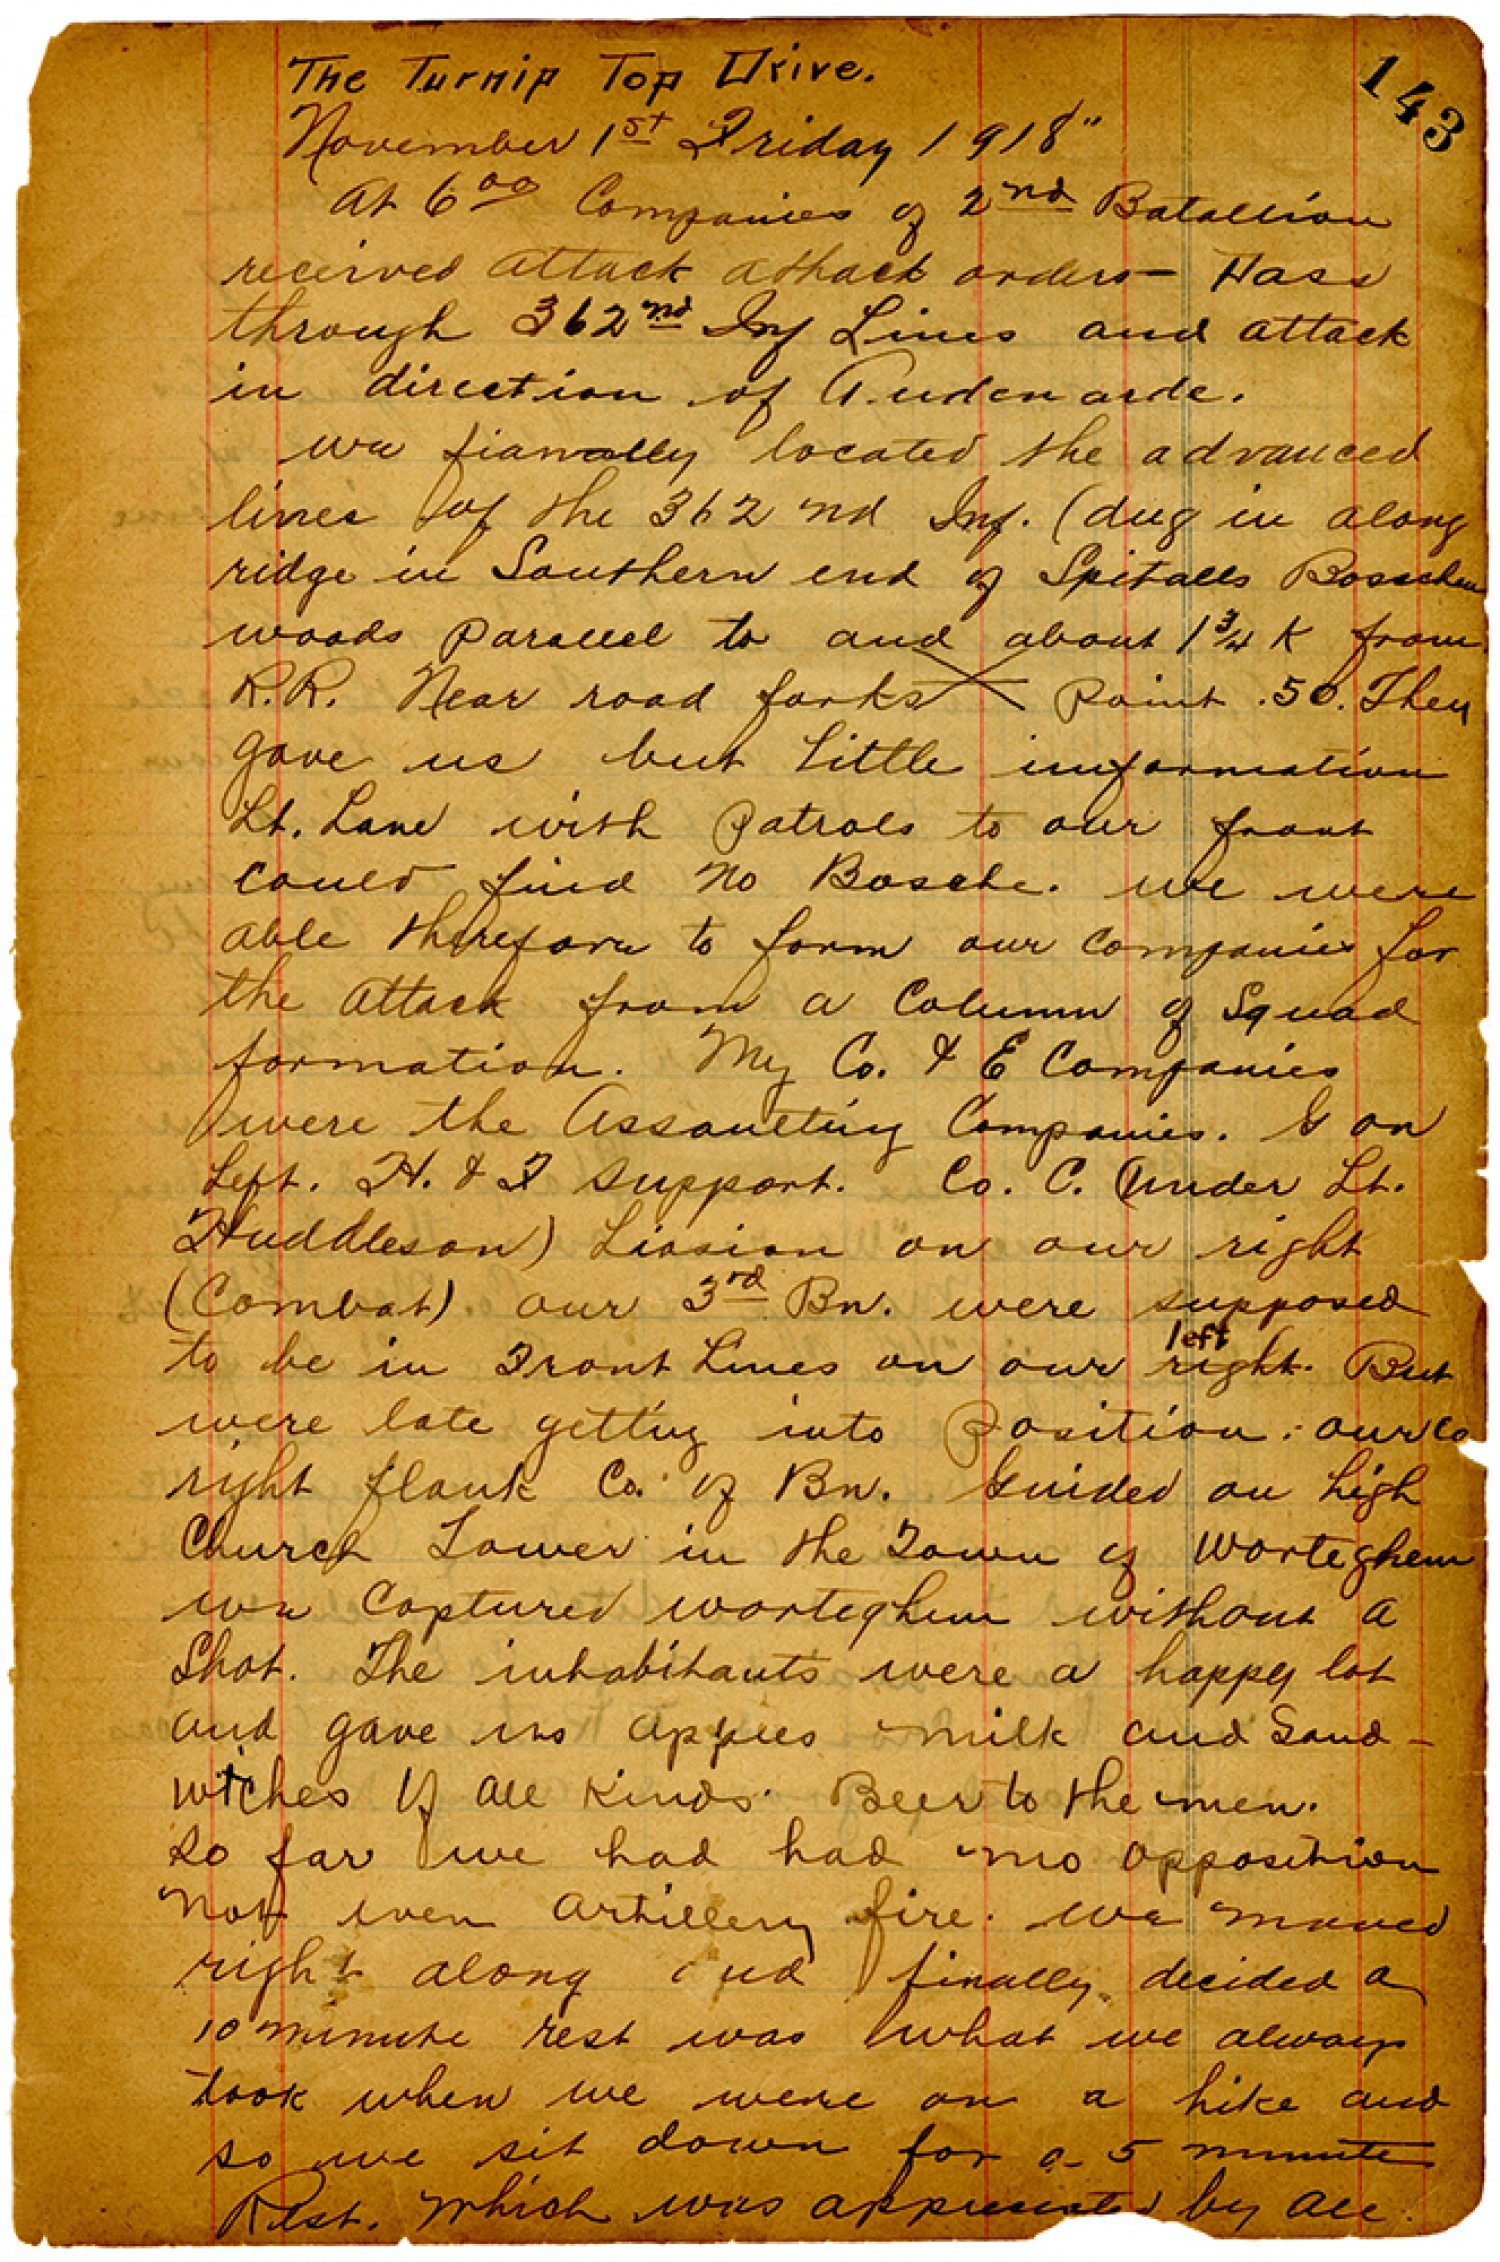 143
The Turnip Top Drive.
November 1st Friday 1918"
At 6 00 Companies of 2nd Batallion
received attack attack orders — Pass
through 362nd Inf Lines and attack
in direction of Audenarde.
we fianally located the advanced
lines of the 362 nd Inf. (dug in along
ridge in Southern end of Spitalls Bosschen
woods parallel to and about 1 3/4 K from
R.R. Near road forks point .50. They
gave us but little information
Lt. Lane with patrols to our front
could find no Bosche. we were
able therefore to form our companies for
the attack from a Column of Squad
formation. My Co. & E Companies
were the Assaulting Companies. G on
Left. H. & F support. Co. C. (under Lt.
Huddleson) Liasion on our right
(Combat). our 3rd Bn. were supposed
to be in Front Lines on our right. left But
were late getting into position. our Co
right flank Co. of Bn. Guided on high
Church Tower in the Town of Worteghem
we Captured worteghem without a
Shot. The inhabitants were a happy lot
and gave us apples milk and Sand-
witches of all kinds. Beer to the men.
so far we had had no opposition
not even artillery fire. we moved
right along and finally decided a
10 minute rest was what we always
took when we were on a hike and
so we sit down for a 5 minute
Rest. which was appreciated by all.